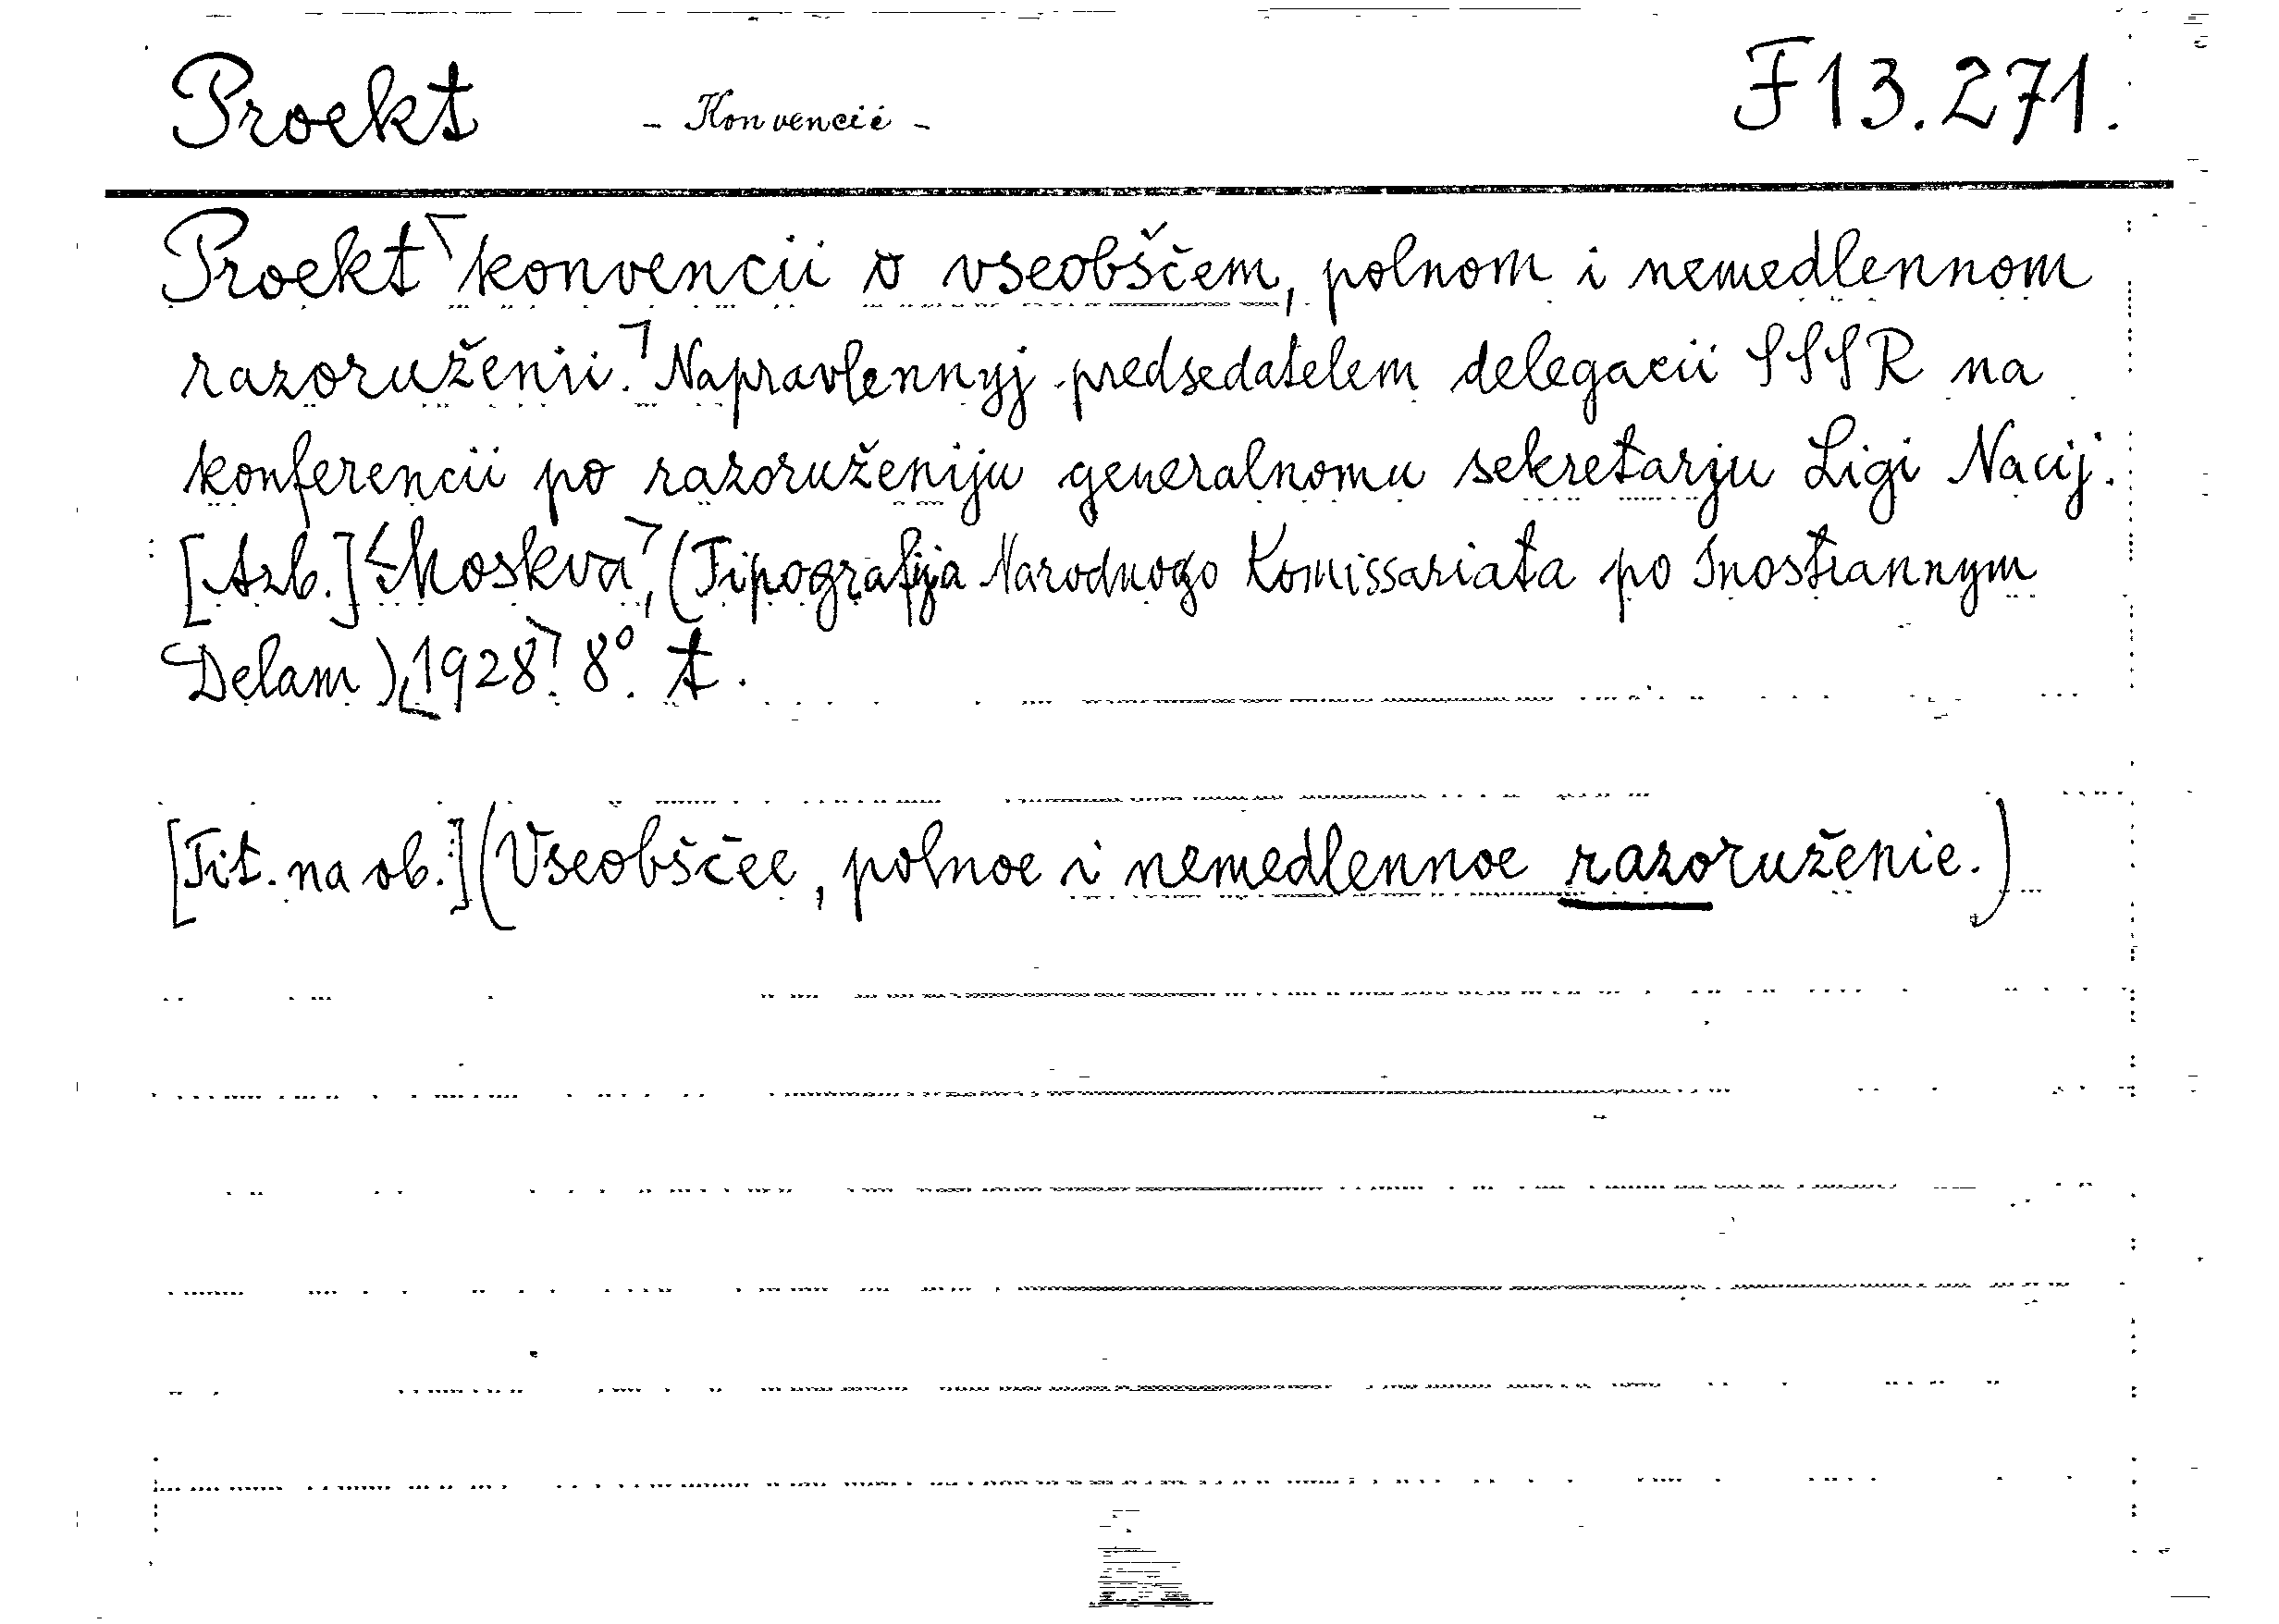 Proekt - Konvencii - F 13.271.
Proekt konvencii o vseobščem, polnom i nemedlennom
razoruženii. Napravlennyj predsedatelem delegacii SSSR na
konferencii po razoruženiju generalnomu sekretarju Ligi Nacij.
[Azb.] Moskva, (Tipografija Narodnogo Komissariata po Inostrannym
Delam), 1928. 8°. t.
[Tit. na ob.] (Vseobščee, polnoe i nemedlennoe razoruženie.)